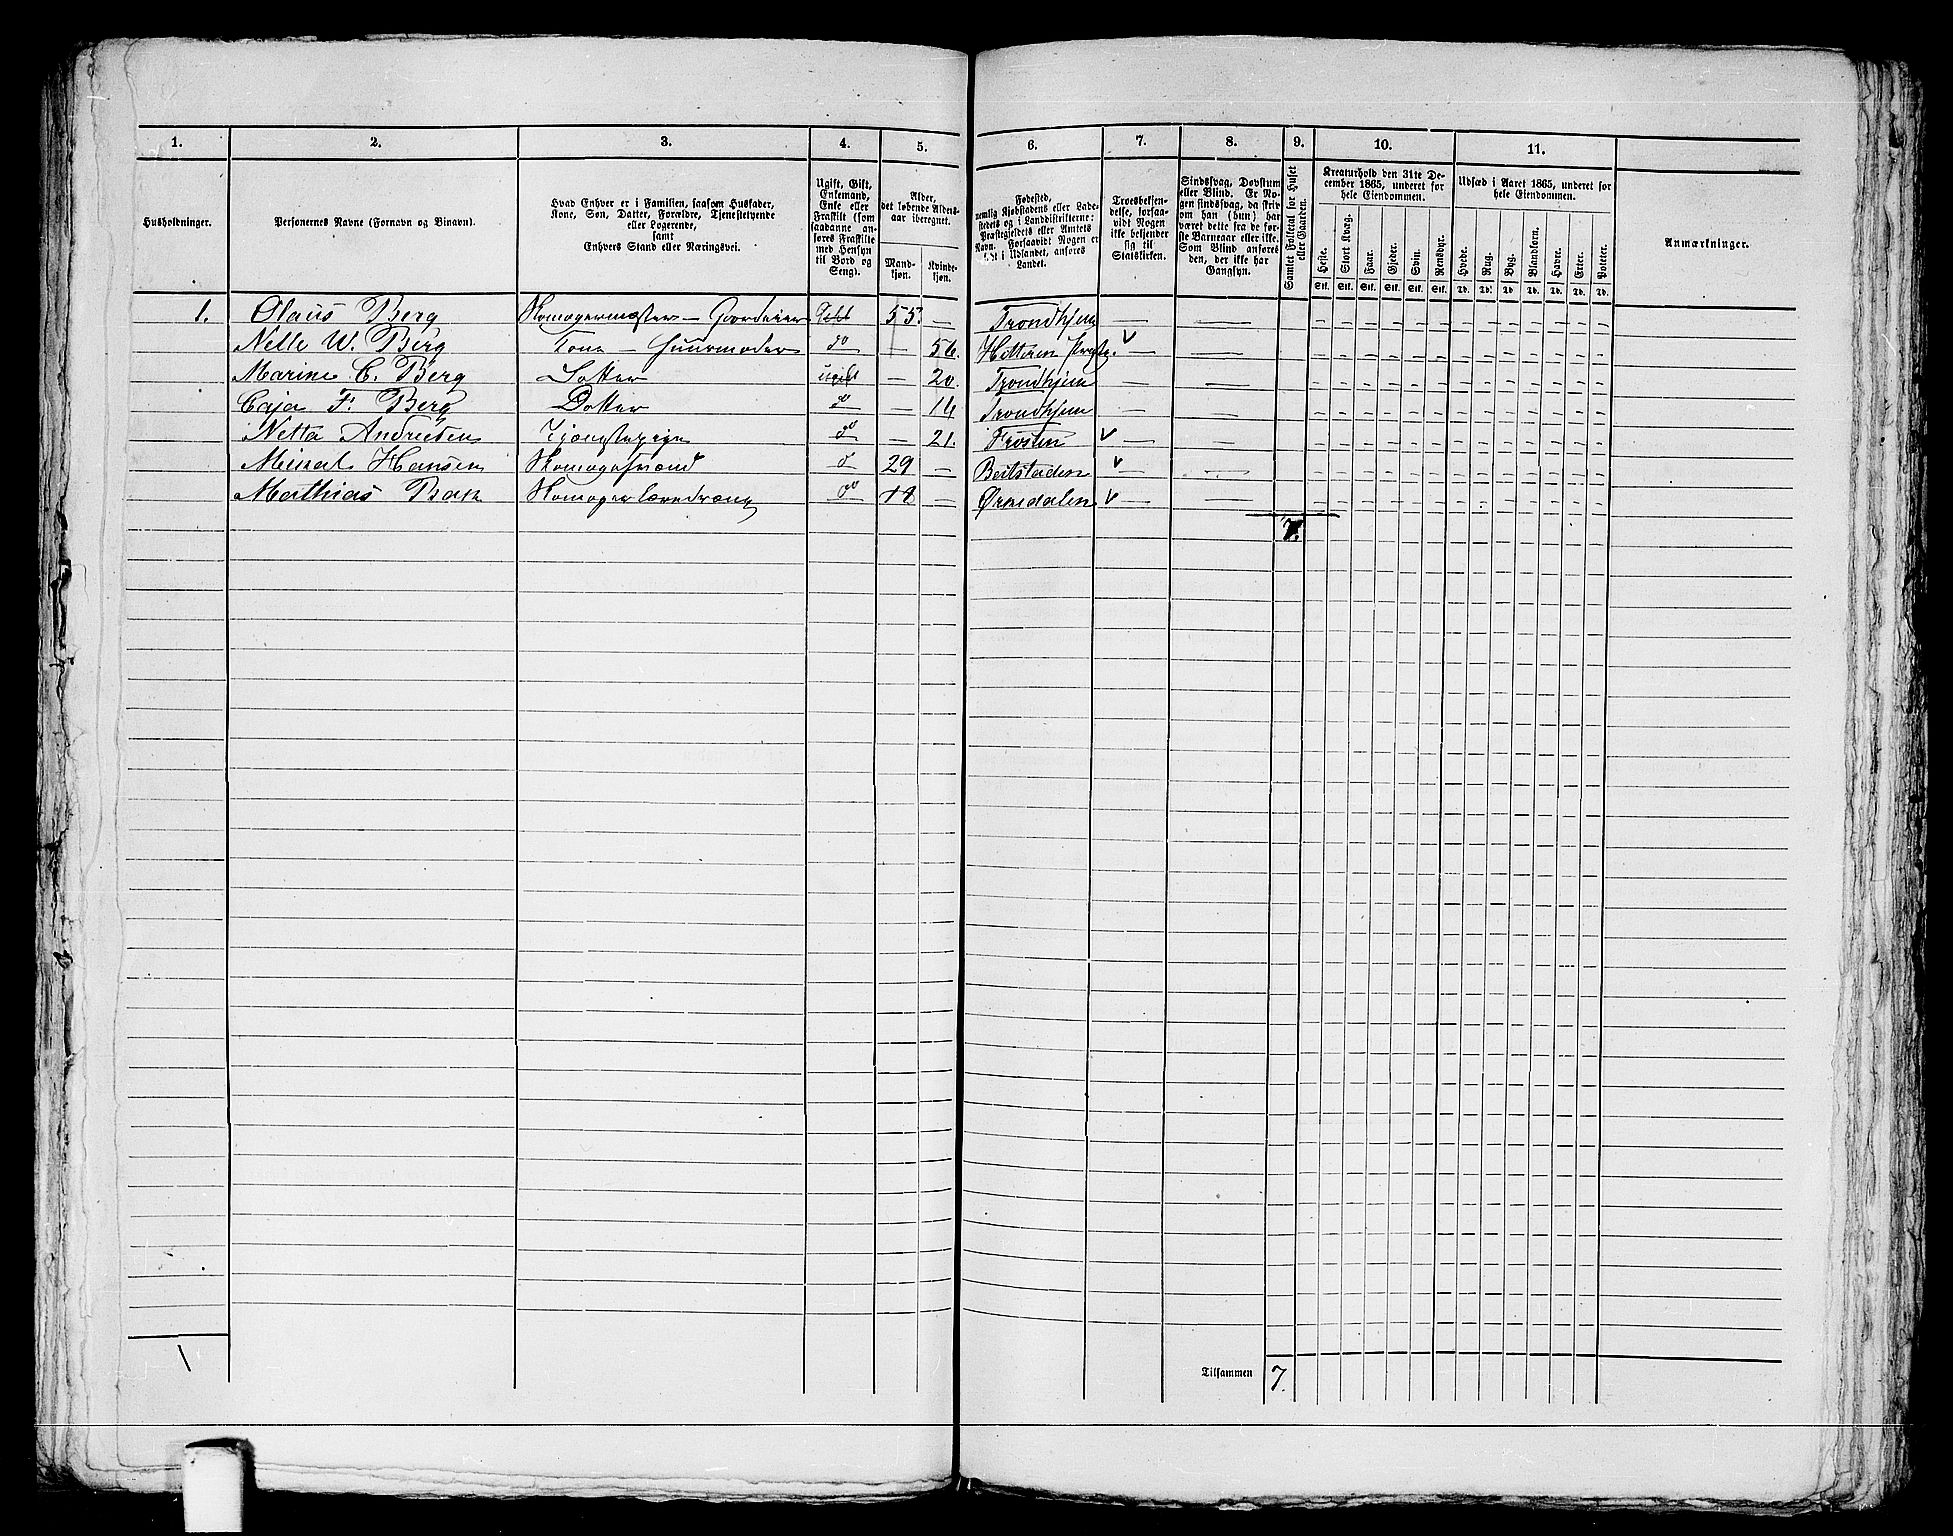 1. 2. 3. 4. 5. 6. 7. 8. 9. 10. 11.
Husholdninger.
Personernes Navne (Fornavn og Binavn).
Hvad Enhver er i Familien, saasom Husfader,
Kone, Søn, Datter, Forældre, Tjenestetyende
eller Logerende,
samt
Enhvers Stand eller Næringsvei.
Ugift, Gift,
Enkemand,
Enke eller
Fraskilt (som
saadanne an-
føres Fraskilte
med Hensyn
til Bord og
Seng).
Alder,
det løbende Alders-
aar iberegnet.
Mand-
kjøn.
Kvinde-
kjøn.
Fødested,
nemlig Kjøbstadens eller Lade-
stedets og i Landdistrikterne:
Præstegjeldets eller Amtets
Navn. Forsaavidt Nogen er
født i Udlandet, anføres
Landet.
Troesbekjen-
delse, forsaa-
vidt Nogen
ikke bekjender
sig til
Statskirken.
Sindssvag, Døvstum
eller Blind. Er No-
gen sindssvag, da skriv
om han (hun) har
været dette fra de før-
ste Barneaar eller ikke.
Som Blind anføres
den, der ikke har
Gangsyn.
Samlet Folketal for Huset
eller Gaarden.
Kreaturhold den 31te De-
cember 1865, underet for
hele Eiendommen.
Heste. Stort Kvæg. Faar. Gjeder. Svin. Rensdyr.
Stk. Stk. Stk. Stk. Stk. Stk.
Udsæd i Aaret 1865, underet for
hele Eiendommen.
Hvede. Rug. Byg. Blandkorn. Havre. Erter. Poteter.
Td. Td. Td. Td. Td. Td. Td.
Anmærkninger.
1. Olaus Berg Komagermester — Gaardeier Gift 55. — Trondhjem — —
Nelle W. Berg Kone — Huusmoder do — 56. Hitteren V — —
Marine C. Berg Datter ugift — 20. Trondhjem — —
Caja F. Berg Datter do — 14 Trondhjem — —
Netta Andresen Tjenestepige do — 21. Frosten V — —
Hansen Komagersvend d 29 — Beitstaden V — —
Mathias Komagerlæredreng do 18 — Ørkedalen V — —
7.
1
Tilsammen 7.